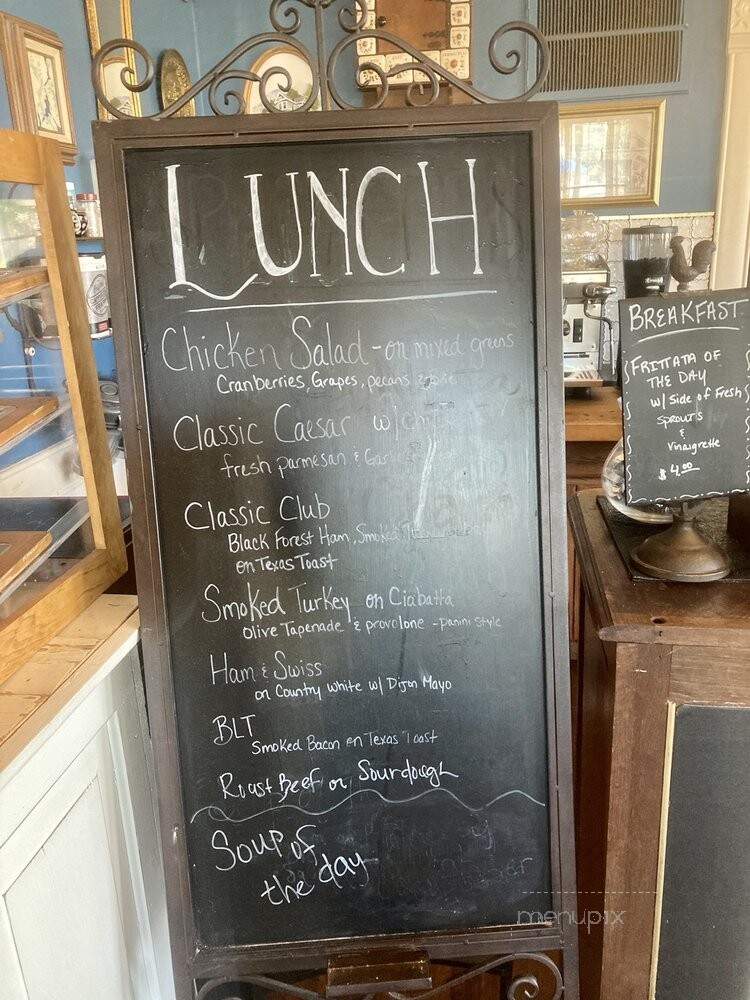 LUNCH
Chicken Salad - on mixed greens
Cranberries, Grapes, pecans
Classic Caesar w/
fresh parmesan &
Classic Club
Black Forest Ham, Smoked
on Texas Toast
Smoked Turkey on Ciabatta
Olive Tapenade & provolone - panini style
Ham & Swiss
on Country White w/ Dijon Mayo
BLT
Smoked Bacon on Texas Toast
Roast Beef on Sourdough
Soup of
the day
BREAKFAST
FRITTATA OF
THE DAY
w/ Side of Fresh
SPROUTS
&
Vinaigrette
$4.00
menupix